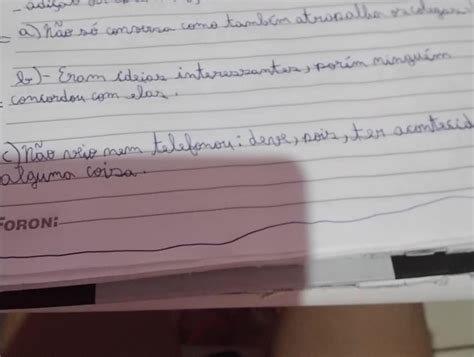 - adição
a) Não só conversa como também atrapalha os colegas
b) - Eram ideias interessantes, porém ninguém
concordou com elas.
c) Não veio nem telefonou: deve, pois, ter acontecid
alguma coisa.
FORONI